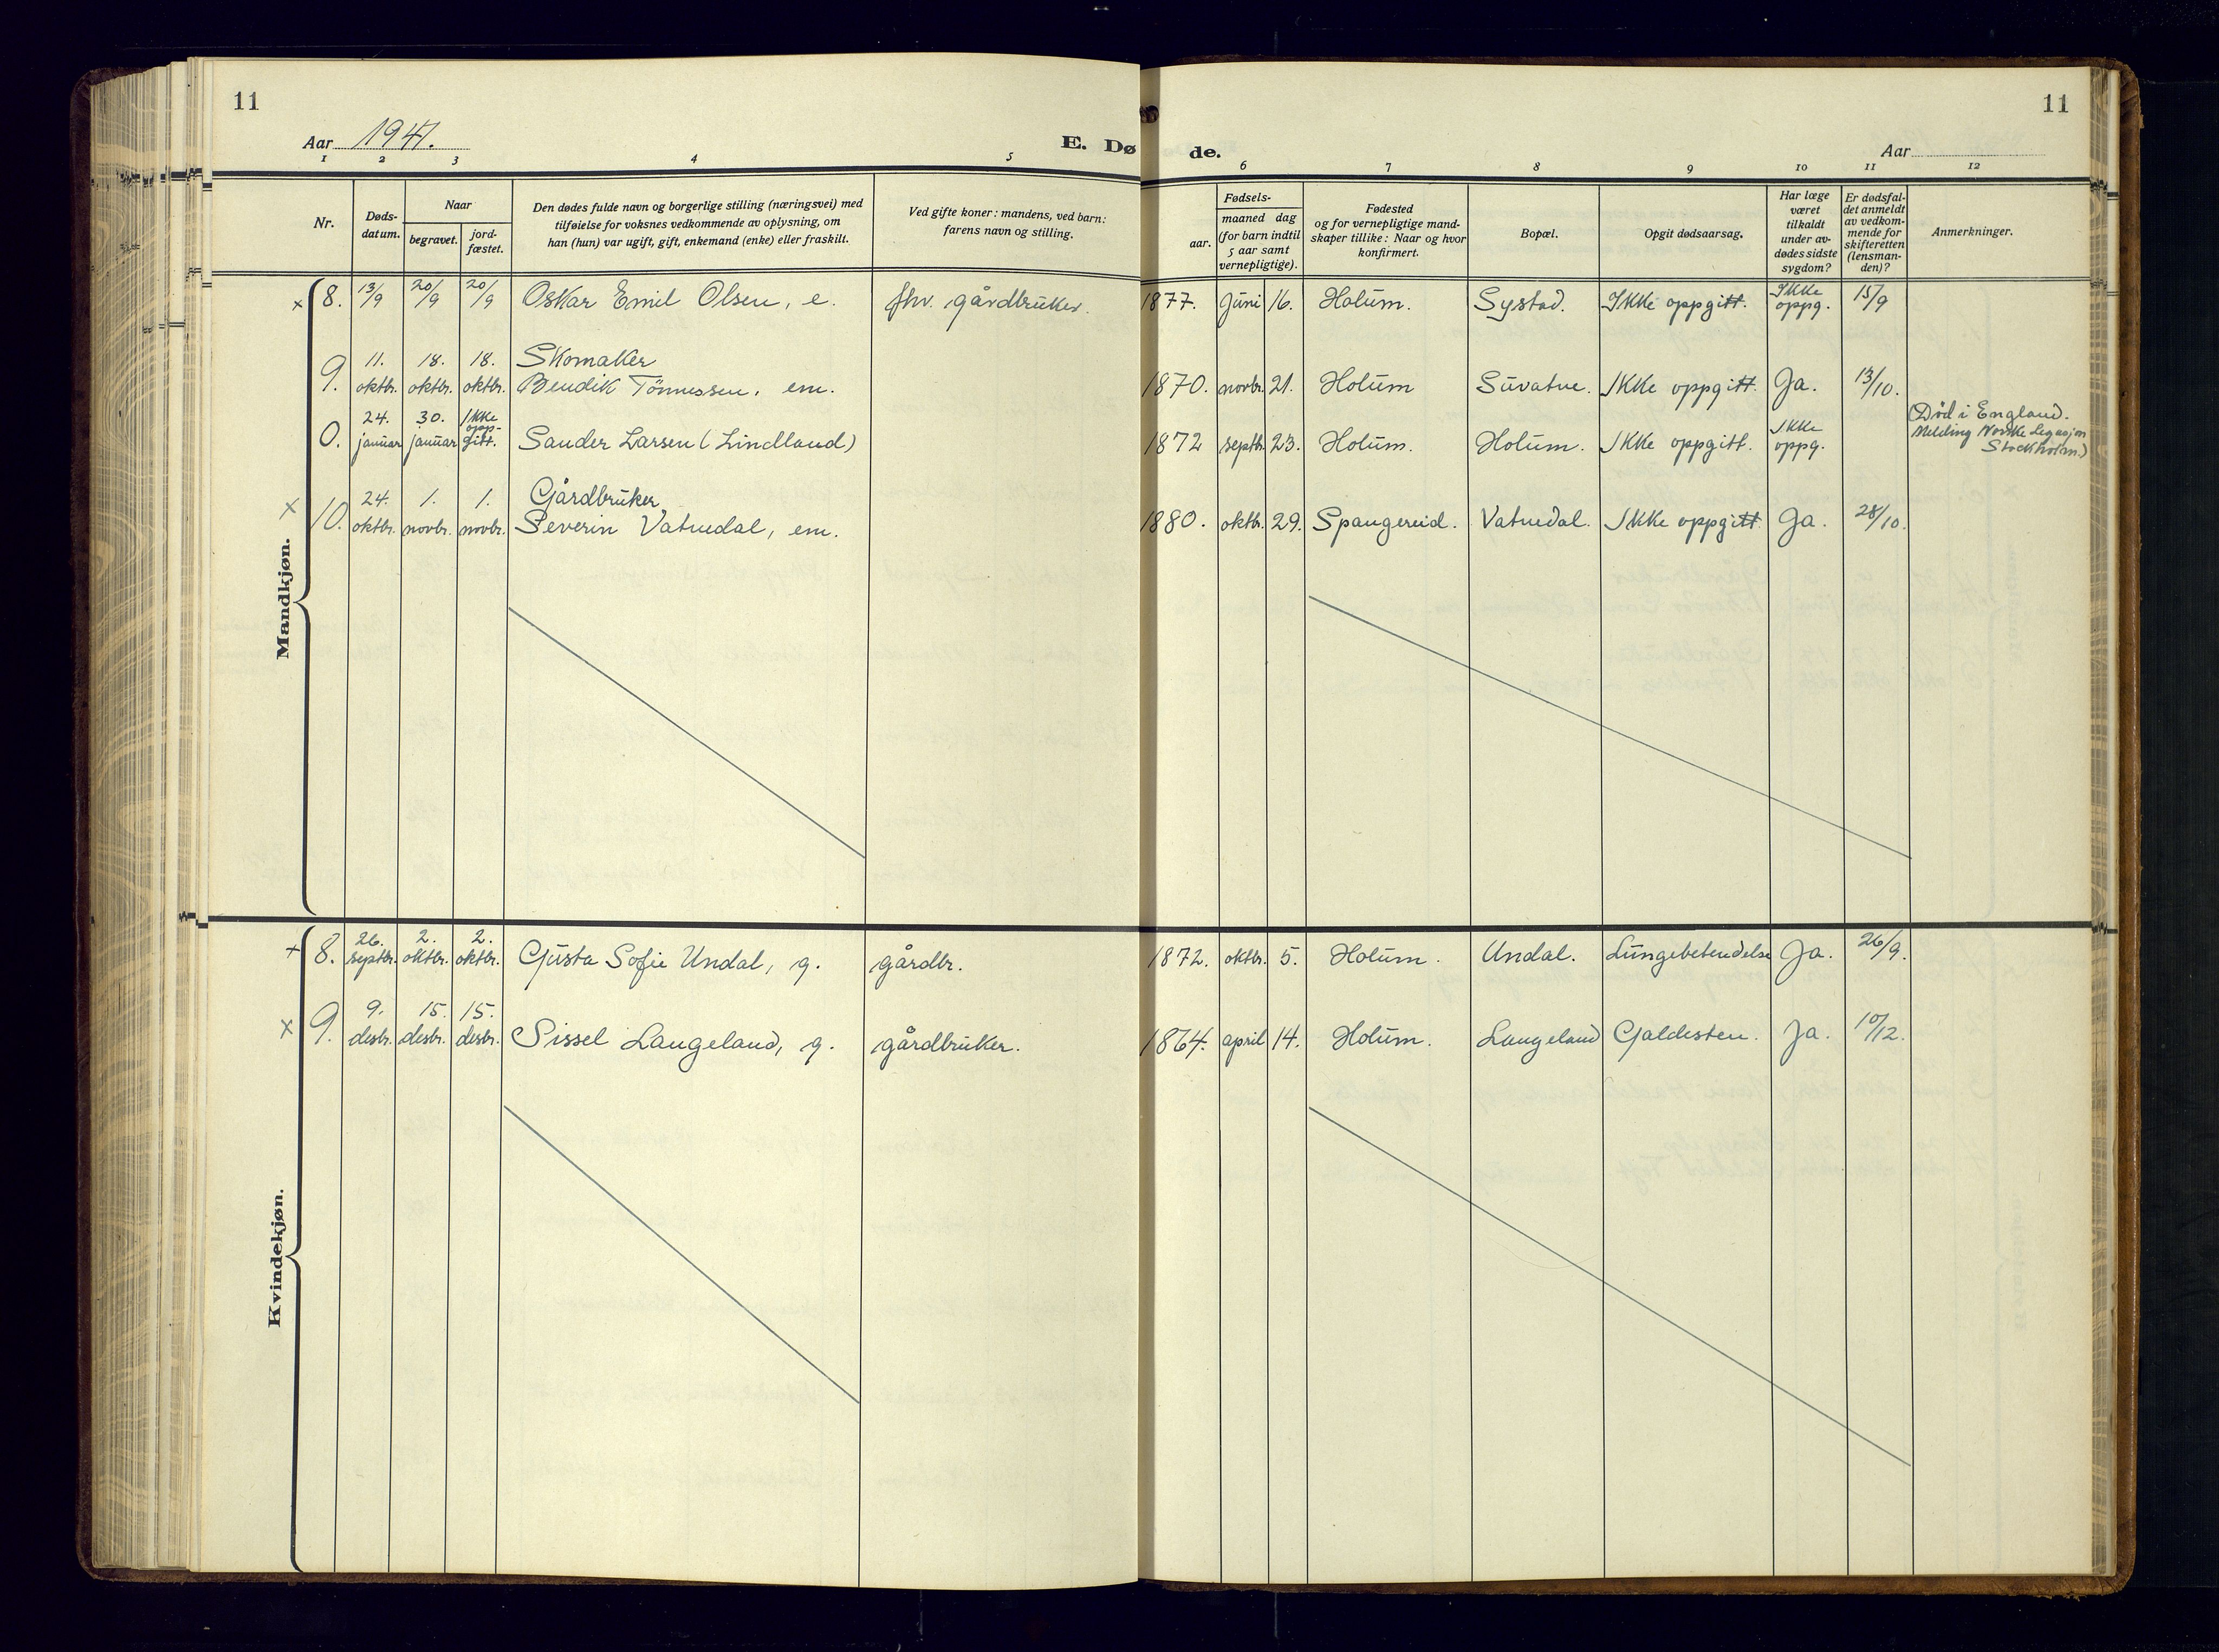 11
11
Aar 1941.
E. Dø
de.
Aar
1 2 3 4 5 6 7 8 9 10 11 12
Nr.
Døds-
datum.
Naar
begravet.
jord-
fæstet.
Den dødes fulde navn og borgerlige stilling (næringsvei) med
tilføielse for voksnes vedkommende av oplysning, om
han (hun) var ugift, gift, enkemand (enke) eller fraskilt.
Ved gifte koner: mandens, ved barn:
farens navn og stilling.
Fødsels-
aar.
maaned dag
(for barn indtil
5 aar samt
vernepligtige).
Fødested
og for vernepligtige mand-
skaper tillike: Naar og hvor
konfirmert.
Bopæl.
Opgit dødsaarsag.
Har læge
været
tilkaldt
under av-
dødes sidste
sygdom?
Er dødsfal-
det anmeldt
av vedkom-
mende for
skifteretten
(lensman-
den)?
Anmerkninger.
Mandkjøn.
x 8. 13/9 20/9 20/9 Oskar Emil Olsen, e. fhv. gårdbruker. 1877. juni 16. Holum. Systad. Ikke oppgitt. Ikke oppg. 15/9
Skomaker
9. 11. oktbr. 18. oktbr. 18. oktbr. Bendik Tönnessen, em. 1870. novbr. 21. Holum Suvatne. Ikke oppgitt. Ja. 13/10.
0. 24. januar 30. januar Ikke opp- gitt. Sander Larsen (Lindland) 1872 septbr. 23. Holum. Holum. Ikke oppgitt. Ikke oppg. (Död i England.
Melding Norske Legasjon
Stockholm.)
Gårdbruker
x 10. 24. oktbr. 1. novbr. 1. novbr. Severin Vatnedal, em. 1880. oktbr. 29. Spangereid. Vatnedal. Ikke oppgitt Ja. 28/10.
Kvindekjøn.
+ 8. 26. septbr. 2. oktbr. 2. oktbr. Gusta Sofie Undal, g. gårdbr. 1872. oktbr. 5. Holum. Undal. Lungebetendelse Ja. 26/9.
x 9. 9. desbr. 15. desbr. 15. desbr. Sissel Langeland, g. gårdbruker. 1864. april 14. Holum. Langeland Galdesten. Ja. 10/12.